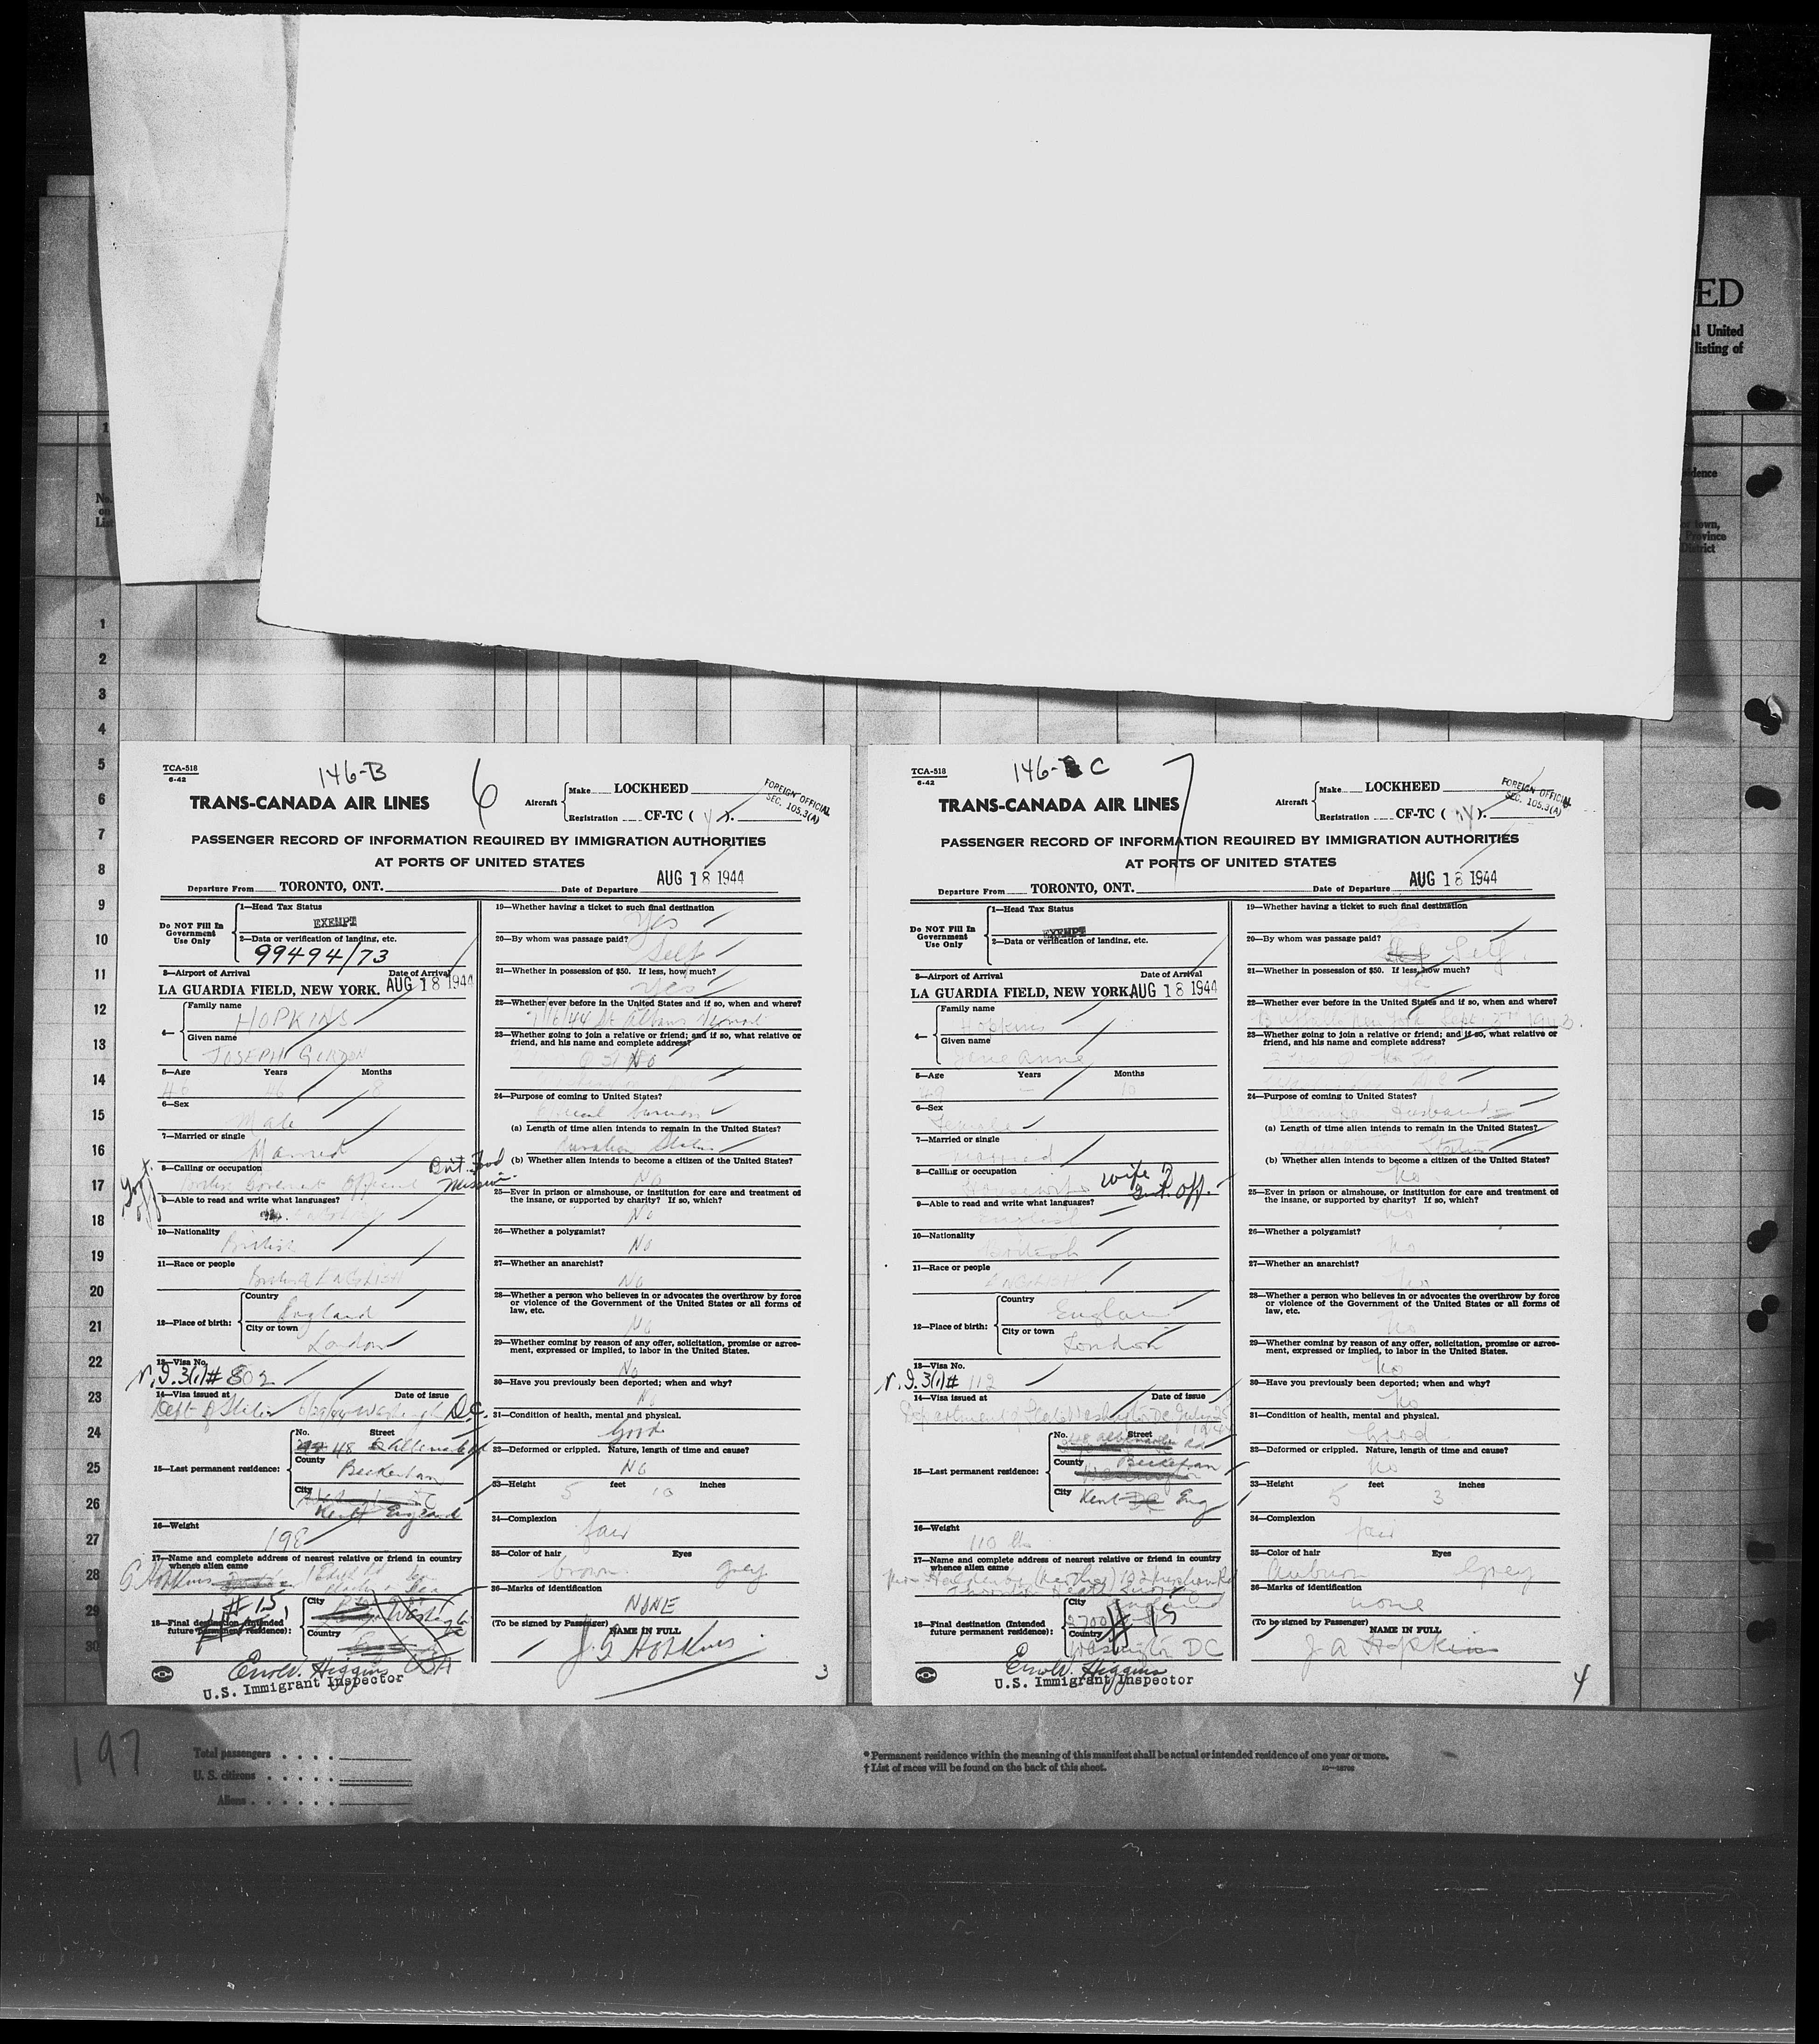 ED
al United
listing of
idence
or town,
Province
District
No.
on
List
1
2
3
4
5
6
7
8
9
10
11
12
13
14
15
16
17
18
19
20
21
22
23
24
25
26
27
28
29
30
TCA-518
6-42
146-B
6
TRANS-CANADA AIR LINES
Aircraft
Make LOCKHEED
Registration CF-TC ( ).
FOREIGN OFFICIAL
SEC. 105.3(A)
PASSENGER RECORD OF INFORMATION REQUIRED BY IMMIGRATION AUTHORITIES
AT PORTS OF UNITED STATES
Departure From TORONTO, ONT. Date of Departure AUG 18 1944
Do NOT Fill In
Government
Use Only
1—Head Tax Status
EXEMPT
2—Data or verification of landing, etc.
99494/73
3—Airport of Arrival Date of Arrival
LA GUARDIA FIELD, NEW YORK. AUG 18 1944
4—
Family name
HOPKINS
Given name
JOSEPH GORDON
5—Age Years Months
6—Sex
Male
7—Married or single
Married
8—Calling or occupation
Brit. Food
Mission.
Govt. off.
9—Able to read and write what languages?
10—Nationality
British
11—Race or people
British ENGLISH
12—Place of birth:
Country
England
City or town
London
13—Visa No.
N.I. 3(1) # 802
14—Visa issued at Date of issue
Dept of State 6/29/44 Washingt D.C.
15—Last permanent residence:
No. Street
48
County
Beckenham
City
Kent England
16—Weight
198
17—Name and complete address of nearest relative or friend in country
whence alien came
G Hopkins
#15
18—Final destination (Intended
future permanent residence):
City
Country
USA
Errol V. Higgins
U.S. Immigrant Inspector
19—Whether having a ticket to such final destination
Yes
20—By whom was passage paid?
Self
21—Whether in possession of $50. If less, how much?
Yes
22—Whether ever before in the United States and if so, when and where?
St Albans Vermont
23—Whether going to join a relative or friend; and if so, what relative or
friend, and his name and complete address?
No
24—Purpose of coming to United States?
Official business
(a) Length of time alien intends to remain in the United States?
Duration Status
(b) Whether alien intends to become a citizen of the United States?
No
25—Ever in prison or almshouse, or institution for care and treatment of
the insane, or supported by charity? If so, which?
No
26—Whether a polygamist?
No
27—Whether an anarchist?
No
28—Whether a person who believes in or advocates the overthrow by force
or violence of the Government of the United States or all forms of
law, etc.
No
29—Whether coming by reason of any offer, solicitation, promise or agree-
ment, expressed or implied, to labor in the United States.
No
30—Have you previously been deported; when and why?
No
31—Condition of health, mental and physical.
Good
32—Deformed or crippled. Nature, length of time and cause?
No
33—Height 5 feet 10 inches
34—Complexion
fair
35—Color of hair Eyes
brown grey
36—Marks of identification
NONE
(To be signed by Passenger) NAME IN FULL
J. G. Hopkins
3
TCA-518
6-42
146-C
7
TRANS-CANADA AIR LINES
Aircraft
Make LOCKHEED
Registration CF-TC ( ).
FOREIGN OFFICIAL
SEC. 105.3(A)
PASSENGER RECORD OF INFORMATION REQUIRED BY IMMIGRATION AUTHORITIES
AT PORTS OF UNITED STATES
Departure From TORONTO, ONT. Date of Departure AUG 18 1944
Do NOT Fill In
Government
Use Only
1—Head Tax Status
EXEMPT
2—Data or verification of landing, etc.
3—Airport of Arrival Date of Arrival
LA GUARDIA FIELD, NEW YORK. AUG 18 1944
4—
Family name
Hopkins
Given name
Jane Anne
5—Age Years Months
6—Sex
Female
7—Married or single
Married
8—Calling or occupation
Housewife
wife of
Gvt. off.
9—Able to read and write what languages?
English
10—Nationality
British
11—Race or people
ENGLISH
12—Place of birth:
Country
England
City or town
London
13—Visa No.
N.I. 3(1) # 112
14—Visa issued at Date of issue
Department of State Washington DC July 25
1944
15—Last permanent residence:
No. Street
County
Beckenham
City
Kent Eng
16—Weight
110 lbs
17—Name and complete address of nearest relative or friend in country
whence alien came
18—Final destination (Intended
future permanent residence):
City
2700 #15
Country
Washington DC
Errol V. Higgins
U.S. Immigrant Inspector
19—Whether having a ticket to such final destination
20—By whom was passage paid?
Self
21—Whether in possession of $50. If less, how much?
22—Whether ever before in the United States and if so, when and where?
Buffalo New York Sept 1943
23—Whether going to join a relative or friend; and if so, what relative or
friend, and his name and complete address?
24—Purpose of coming to United States?
Husband
(a) Length of time alien intends to remain in the United States?
Status
(b) Whether alien intends to become a citizen of the United States?
No
25—Ever in prison or almshouse, or institution for care and treatment of
the insane, or supported by charity? If so, which?
No
26—Whether a polygamist?
No
27—Whether an anarchist?
No
28—Whether a person who believes in or advocates the overthrow by force
or violence of the Government of the United States or all forms of
law, etc.
No
29—Whether coming by reason of any offer, solicitation, promise or agree-
ment, expressed or implied, to labor in the United States.
No
30—Have you previously been deported; when and why?
No
31—Condition of health, mental and physical.
Good
32—Deformed or crippled. Nature, length of time and cause?
No
33—Height 5 feet 3 inches
34—Complexion
fair
35—Color of hair Eyes
Auburn Grey
36—Marks of identification
none
(To be signed by Passenger) NAME IN FULL
J A Hopkins
4
197
Total passengers
U. S. citizens
Aliens
* Permanent residence within the meaning of this manifest shall be actual or intended residence of one year or more.
† List of races will be found on the back of this sheet.